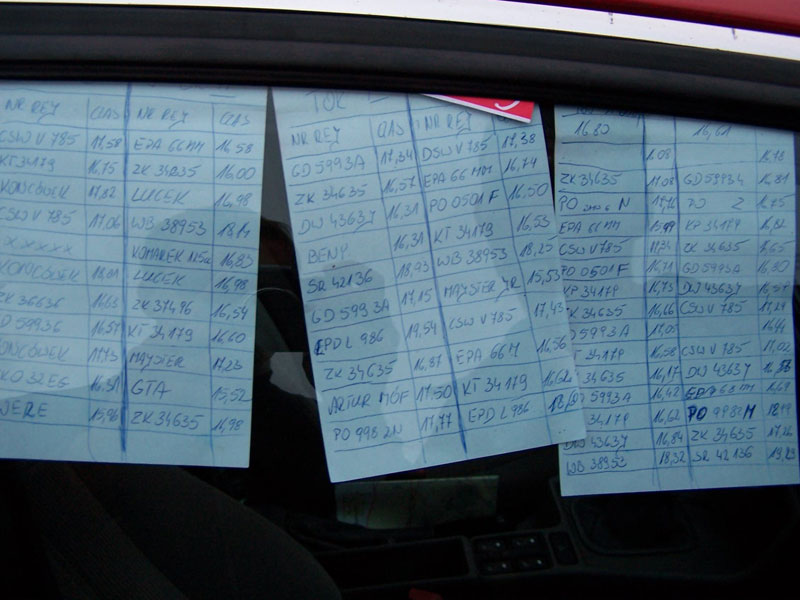 NR REJ CZAS NR REJ CZAS
CSW V 785 17,58 EPA 66MM 16,58
KT 34179 16,75 ZK 34635 16,00
KOŃCÓWEK 17,82 LUCEK 16,98
CSW V 785 17,06 WB 38953 18,14
XXXXXX KOMAREK 16,80
KOŃCÓWEK LUCEK 16,98
ZK 36636 16,63 ZK 37496 16,54
16,57 KT 34179 16,60
KOŃCÓWEK 17,73 MAJSTER 17,23
KO 32EG 16,51 GTA 15,52
JERE 15,96 ZK 34635 16,98
TOR
NR REJ CZAS NR REJ
GD 5993A 17,34 DSW V 785 17,38
ZK 34635 16,57 EPA 66 MM 16,74
DW 43637 16,31 PO 0501 F 16,50
BENY 16,31 KT 34179 16,53
SR 42136 18,93 WB 38953 18,25
GD 5993A 17,15 MAJSTER JR 15,53
EPD L 986 19,54 CSW V 785 17,43
ZK 34635 16,87 EPA 66M 16,56
ARTUR MOF 17,50 KT 34179 16,62
PO 998 2N 17,77 EPD L 986
16,80 16,61
17,08 16,78
ZK 34635 17,08 GD 5993A 16,81
PO N 17,16 PO 2
EPA 66MM KP 34179 16,82
CSW V 785 17,34 ZK 34635 16,65
PO 0501 F 16,71 GD 5993A 16,50
KP 34179 16,73 DW 43637 16,57
ZK 34635 16,66 CSW V 785 17,24
5993A 17,05 16,44
34179 16,58 CSW V 785 17,02
34635 16,17 DW 43637 16,58
5993A 16,42 EPA 66MM 16,69
34179 16,62 PO 9982M
DW 43637 16,84 ZK 34635 17,26
WB 38953 18,32 SR 42136 19,23